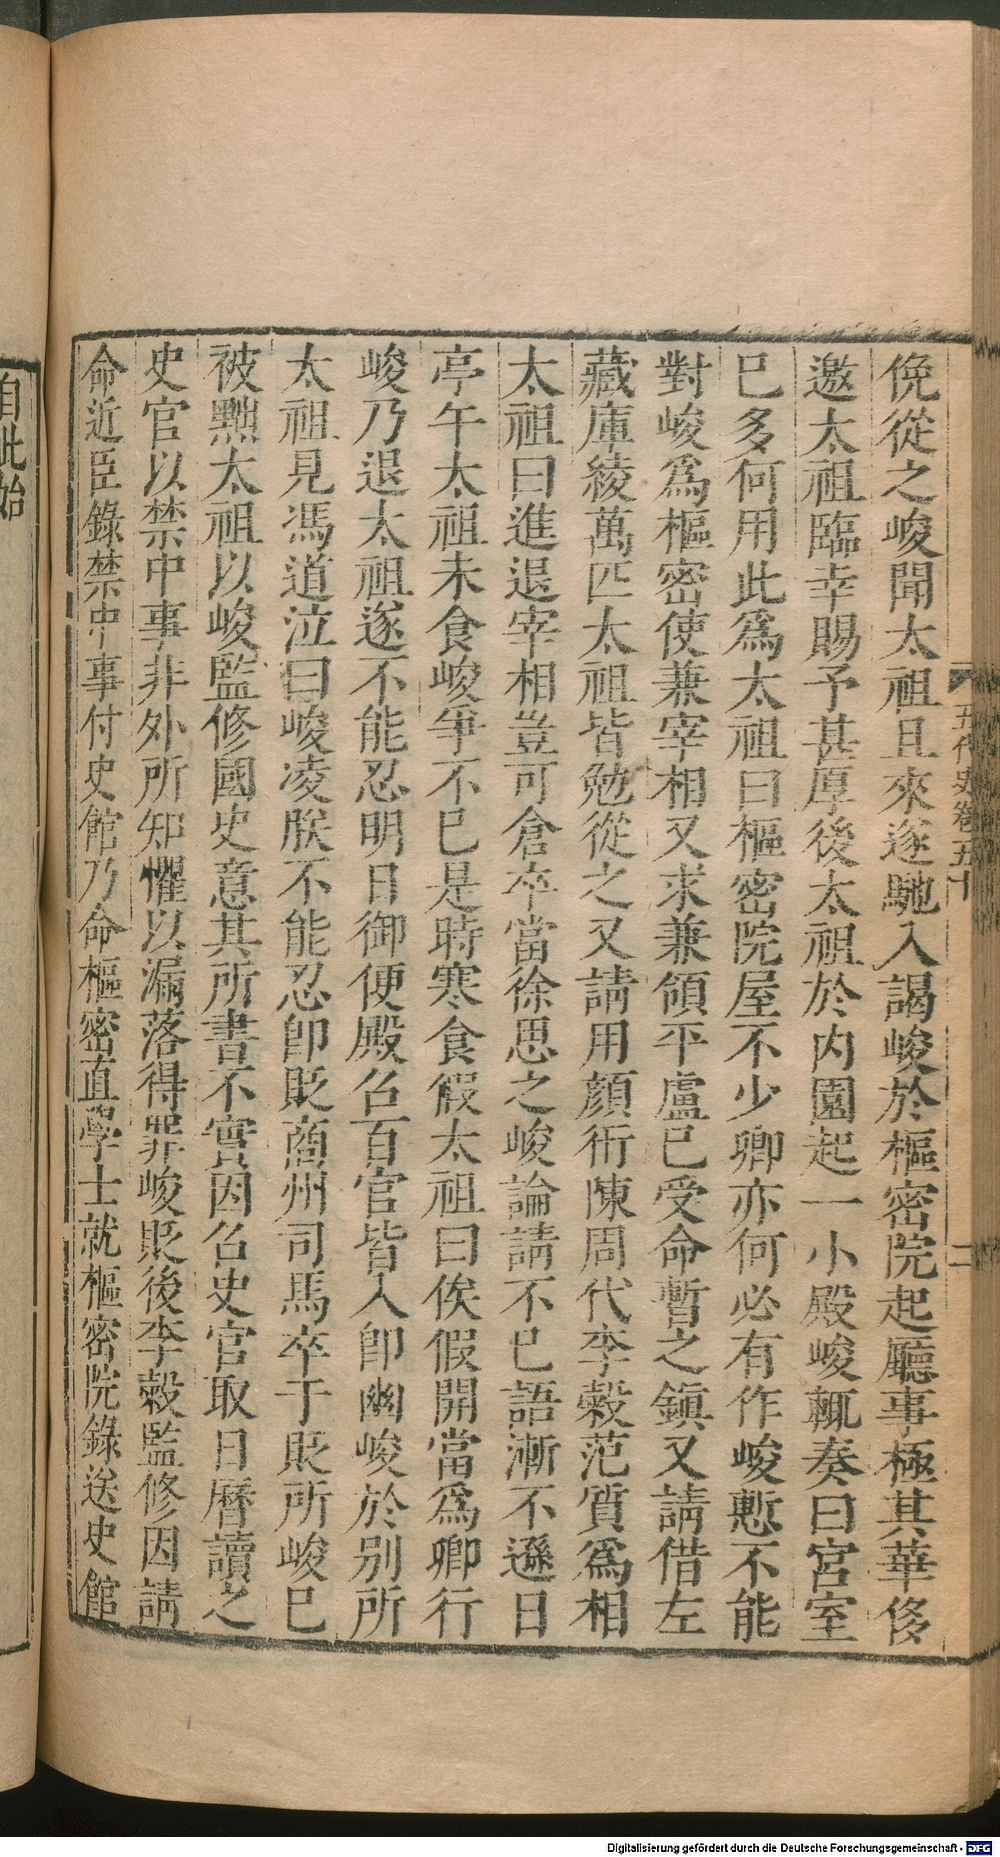 五代史卷五十
二
俛從之峻聞太祖且來遂馳入謁峻於樞密院起廳事極其華侈
邀太祖臨幸賜予甚厚後太祖於內園起一小殿峻輒奏曰宮室
已多何用此爲太祖曰樞密院屋不少卿亦何必有作峻慙不能
對峻爲樞密使兼宰相又求兼領平盧已受命暫之鎮又請借左
藏庫綾萬匹太祖皆勉從之又請用顔衎陳周代李榖范質爲相
太祖曰進退宰相豈可倉卒當徐思之峻論請不已語漸不遜日
亭午太祖未食峻爭不已是時寒食假太祖曰俟假開當爲卿行
峻乃退太祖遂不能忍明日御便殿召百官皆入卽幽峻於別所
太祖見馮道泣曰峻凌朕不能忍卽貶商州司馬卒于貶所峻已
被黜太祖以峻監修國史意其所書不實因召史官取日曆讀之
史官以禁中事非外所知懼以漏落得罪峻貶後李榖監修因請
命近臣錄禁中事付史館乃命樞密直學士就樞密院錄送史館
自此始
Digitalisierung gefördert durch die Deutsche Forschungsgemeinschaft - DFG